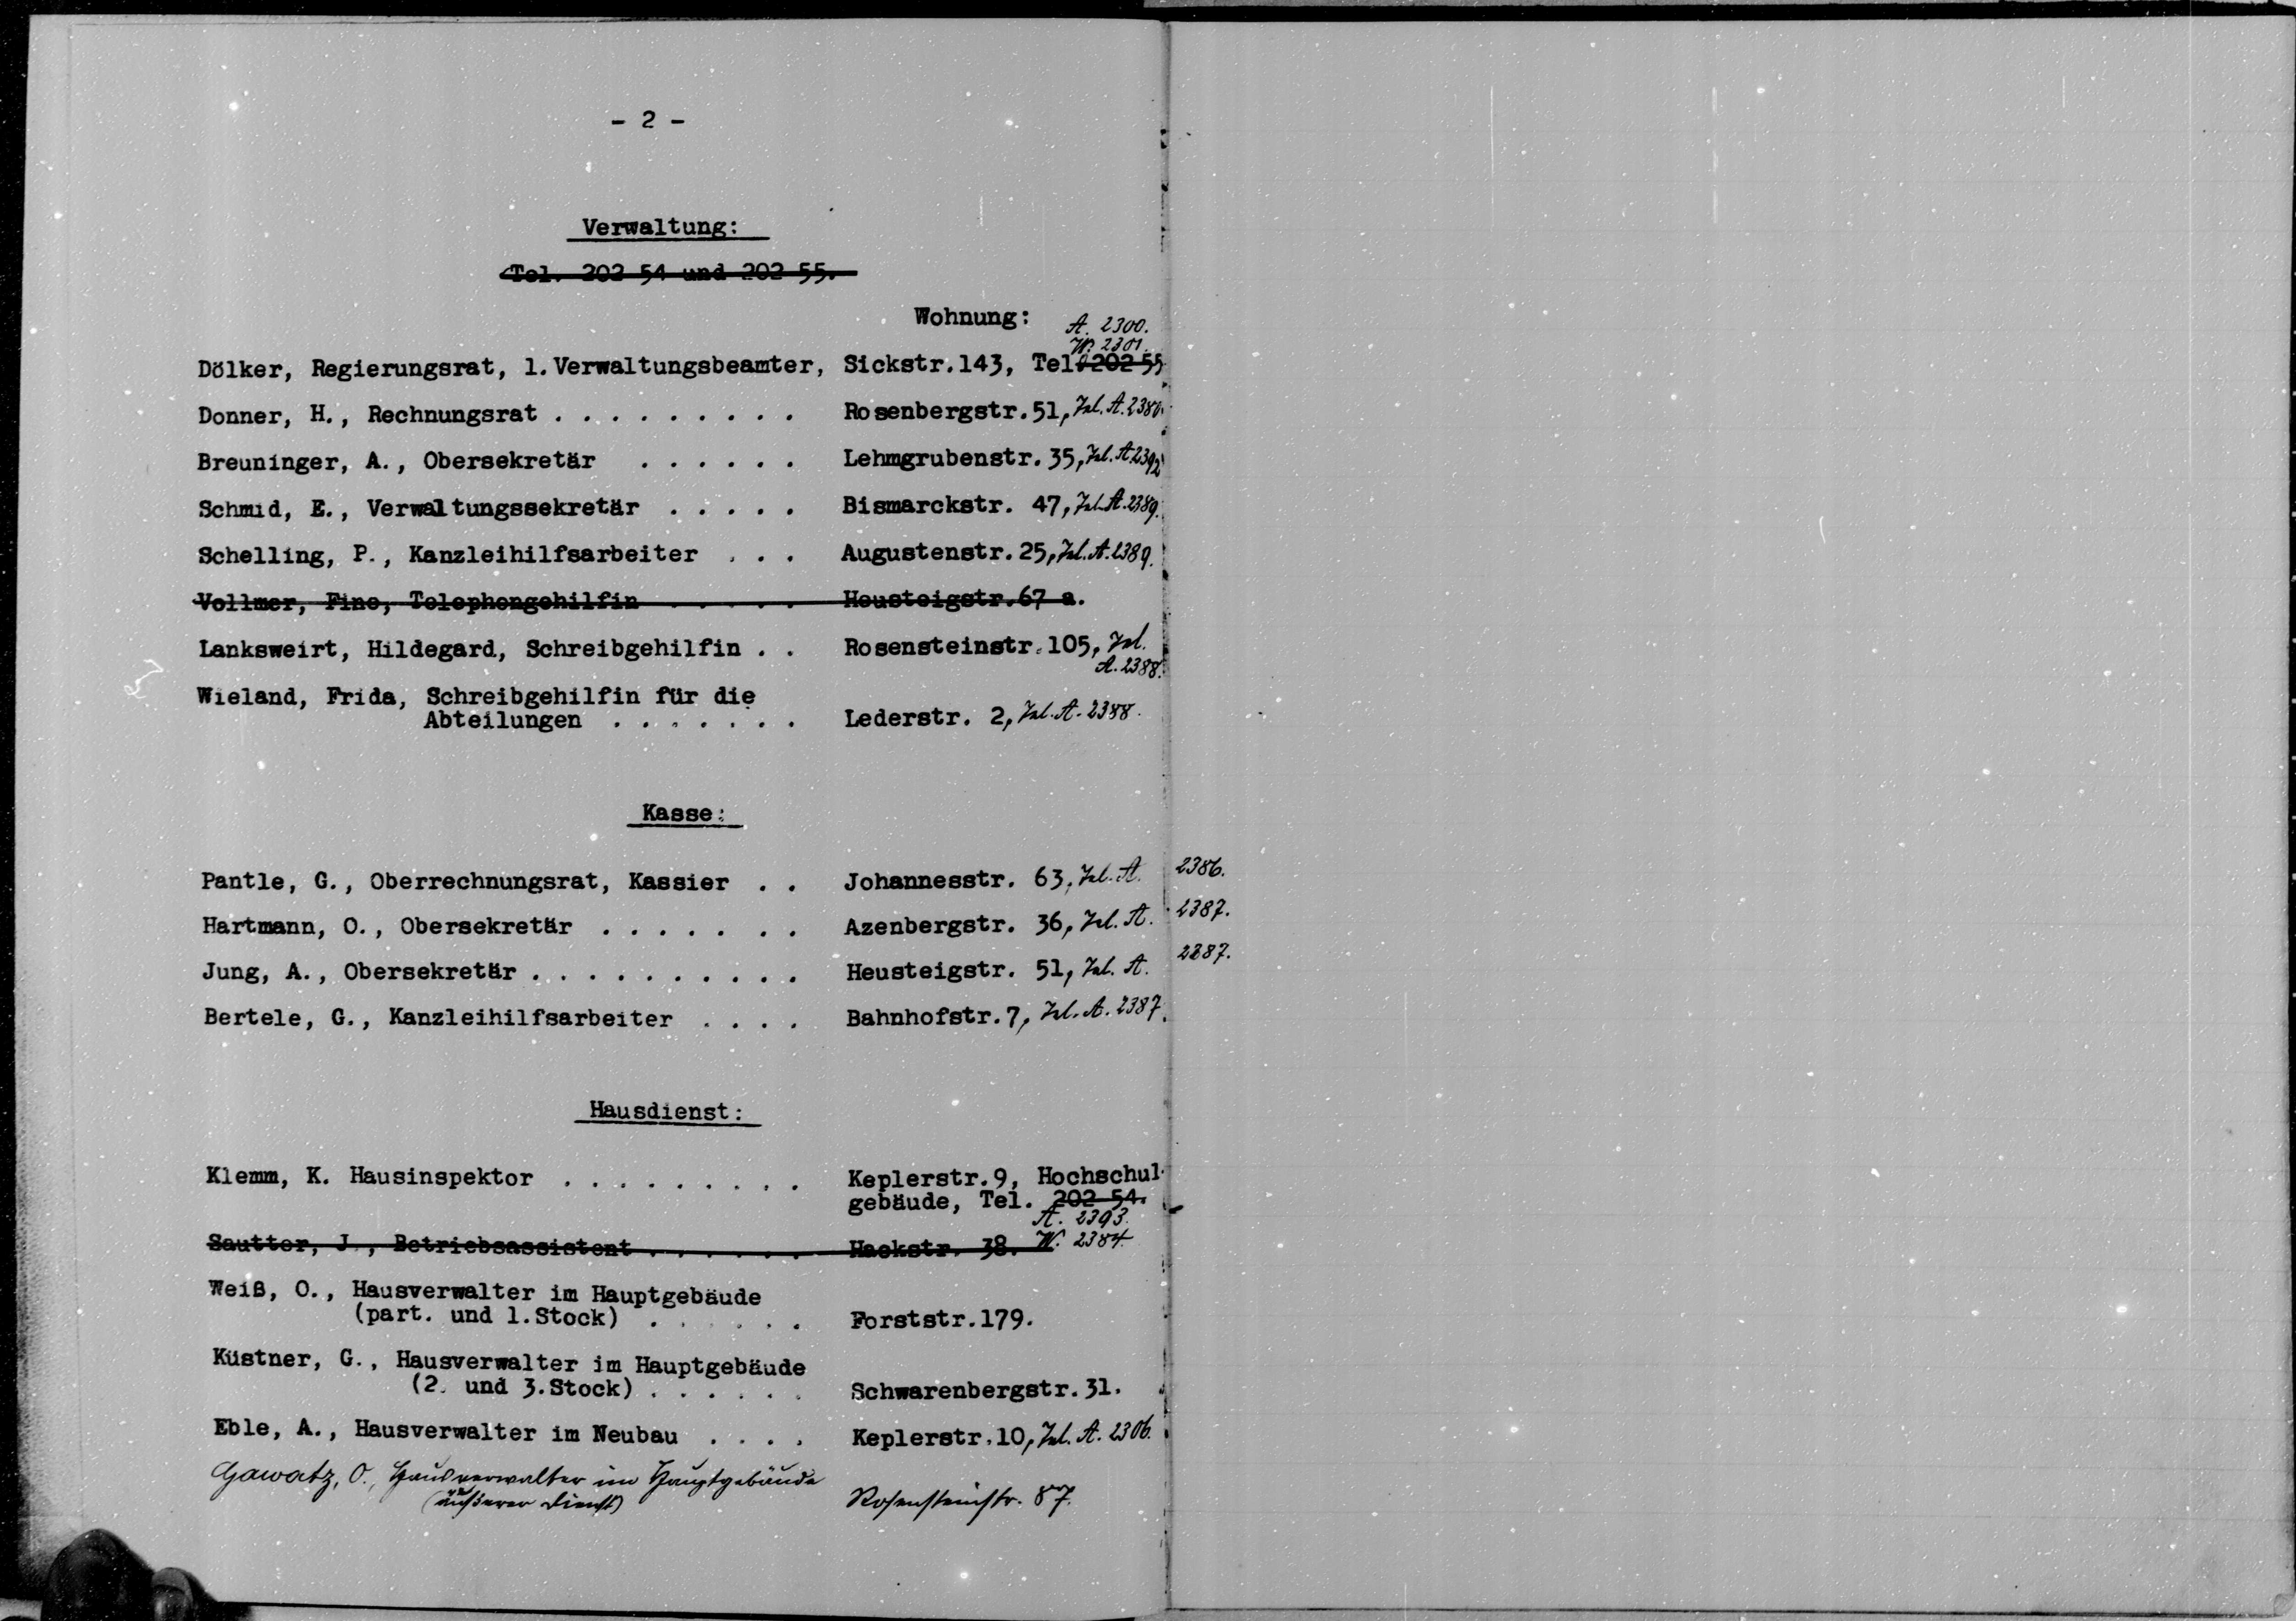 - 2 -
Verwaltung:
Tel. 202 54 und 202 55.
Wohnung:
A. 2300.
W. 2301.
Dölker, Regierungsrat, 1. Verwaltungsbeamter, Sickstr. 143, Tel. 202 55
Donner, H., Rechnungsrat . . . . . . . . . Rosenbergstr. 51, Tel. A. 2380.
Breuninger, A., Obersekretär . . . . . . Lehmgrubenstr. 35, Tel. A. 2392
Schmid, E., Verwaltungssekretär . . . . . Bismarckstr. 47, Tel. A. 2389.
Schelling, P., Kanzleihilfsarbeiter . . . Augustenstr. 25, Tel. A. 2389.
Vollmer, Fine, Telephongehilfin . . . . . Heusteigstr. 67 a.
Lanksweirt, Hildegard, Schreibgehilfin . . Rosensteinstr. 105, Tel.
A. 2388.
Wieland, Frida, Schreibgehilfin für die
Abteilungen . . . . . . . Lederstr. 2, Tel. A. 2388.
Kasse:
Pantle, G., Oberrechnungsrat, Kassier . . Johannesstr. 63, Tel. A. 2386.
Hartmann, O., Obersekretär . . . . . . . Azenbergstr. 36, Tel. A. 2387.
Jung, A., Obersekretär . . . . . . . . . . Heusteigstr. 51, Tel. A. 2387.
Bertele, G., Kanzleihilfsarbeiter . . . . Bahnhofstr. 7, Tel. A. 2387.
Hausdienst:
Klemm, K. Hausinspektor . . . . . . . . . Keplerstr. 9, Hochschul-
gebäude, Tel. 202 54.
A. 2393.
Sautter, J., Betriebsassistent . . . . . . Hackstr. 38. W. 2384.
Weiß, O., Hausverwalter im Hauptgebäude
(part. und 1. Stock) . . . . . . Forststr. 179.
Küstner, G., Hausverwalter im Hauptgebäude
(2. und 3. Stock) . . . . . . Schwarenbergstr. 31.
Eble, A., Hausverwalter im Neubau . . . . Keplerstr. 10, Tel. A. 2306.
Gawatz, O., Hausverwalter im Hauptgebäude
(äußerer Dienst) Rosensteinstr. 87.